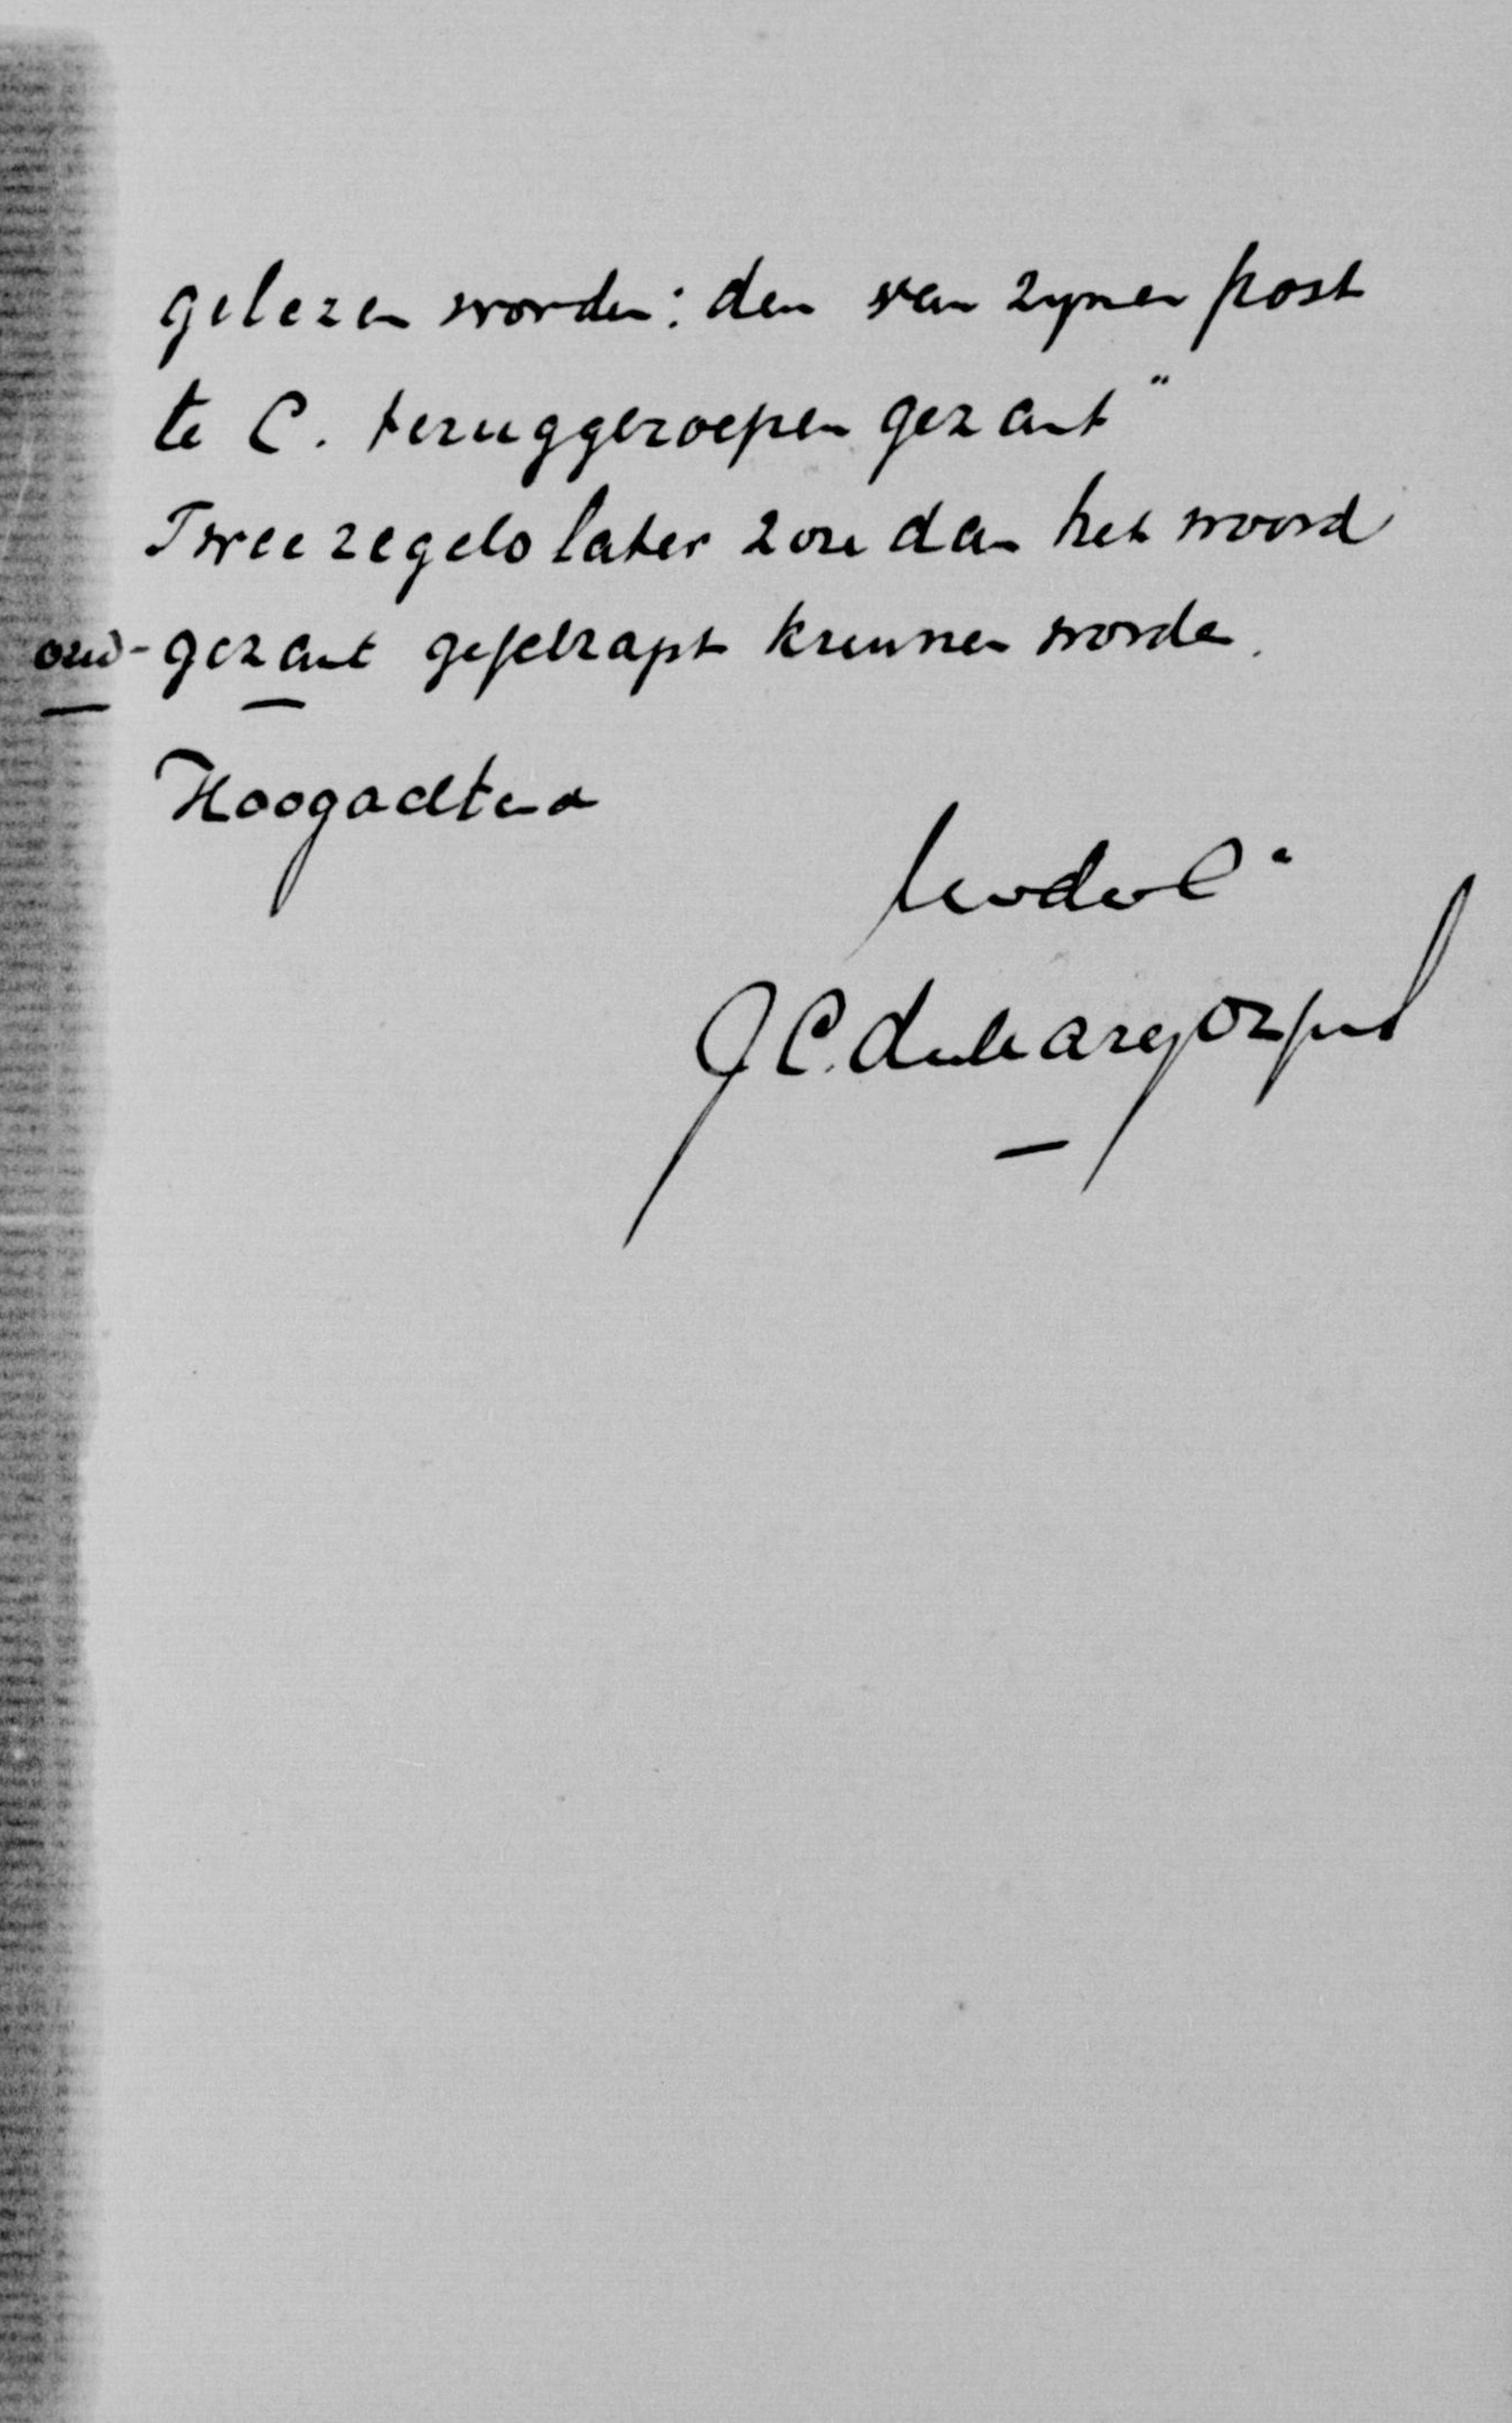 gelezen worden: den van zynen post
te C. teruggeroepen gezant"
Twee regels later zou dan het woord
oud-gezant geschrapt kunnen worden.
Hoogachtend
J C. de